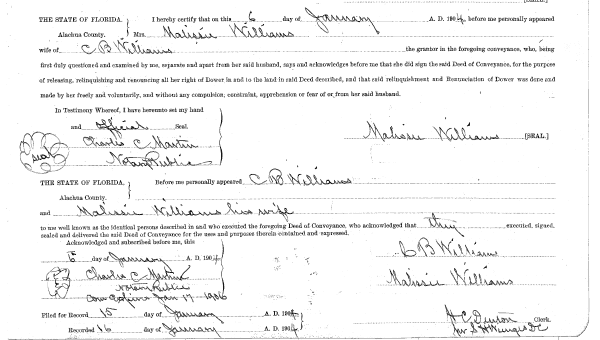 [SEAL.]
THE STATE OF FLORIDA. } I hereby certify that on this 6 day of January A. D. 1904, before me personally appeared
Alachua County. } Mrs. Malissie Williams
wife of C B Williams the grantor in the foregoing conveyance, who, being
first duly questioned and examined by me, separate and apart from her said husband, says and acknowledges before me that she did sign the said Deed of Conveyance, for the purpose
of releasing, relinquishing and renouncing all her right of Dower in and to the land in said Deed described, and that said relinquishment and Renunciation of Dower was done and
made by her freely and voluntarily, and without any compulsion, constraint, apprehension or fear of or from her said husband.
In Testimony Whereof, I have hereunto set my hand
and official Seal.
Charlie C Martin
Seal
Notary Public
Malissie Williams [SEAL.]
THE STATE OF FLORIDA. } Before me personally appeared C B Williams
Alachua County. }
and Malissie Williams his wife
to me well known as the identical persons described in and who executed the foregoing Deed of Conveyance, who acknowledged that they executed, signed,
sealed and delivered the said Deed of Conveyance for the uses and purposes therein contained and expressed.
Acknowledged and subscribed before me, this
6 day of January A. D. 1904
Charlie C Martin
Notary Public
Com Expires Jan 17 1906
C B Williams
Malissie Williams
Filed for Record 15 day of January A. D. 1904
Recorded 16 day of January A. D. 1904
H C Denton Clerk.